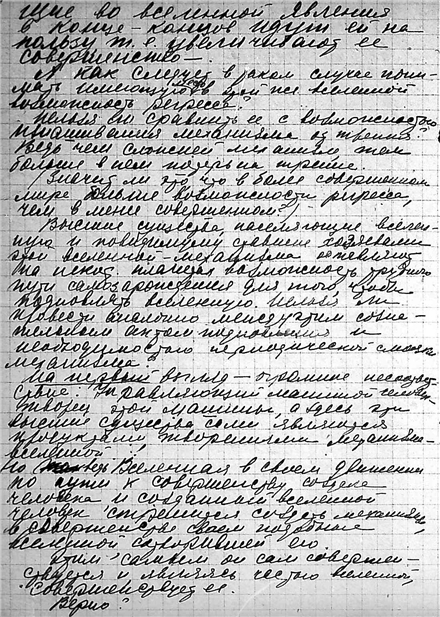 щие во вселенной явления
в конце-концов идут ей на
пользу т.е. увеличивают ее
совершенство —
А как следует в таком случае пони-
мать имеющуюся в той же вселенной
возможность регресса?
Нельзя ли сравнить ее с возможностью
изнашивания механизма от трения?
Ведь чем сложней механизм тем
больше в нем потерь на трение.
Значит ли это, что в более совершенном
мире больше возможности регресса,
чем в менее совершенном?
Высшие существа, населяющие вселен-
ную и повидимому ставшие хозяевами
этой вселенной-механизма оставляют
на некот. планетах возможность трудного
пути самозарождения для того чтобы
подновлять вселенную. Нельзя ли
провести аналогию между этим созна-
тельным актом подновления и
необходимостью периодической смазки
механизма?
На первый взгляд — огромное несоответ-
ствие. Управляющий машиной человек
творец этой машины, а здесь эти
высшие существа сами являются
продуктами, творениями механизма-
вселенной.
Но ведь Вселенная в своем движении
по пути к совершенству создала
человека и созданный вселенной
человек стремится создать механизм,
в совершенстве своем подобный
вселенной сотворившей его.
Этим самым он сам совершен-
ствуется и являясь частью вселенной,
совершенствует ее.
Верно?